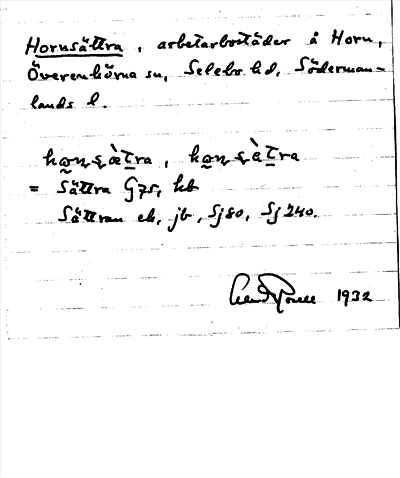 Hornsättra, arbetarbostäder å Horn,
Överenhörna sn, Selebo hd, Söderman-
lands l.
= Sättra G75, hb
Sättran ek, jb, Sj80, Sj 240.
1932